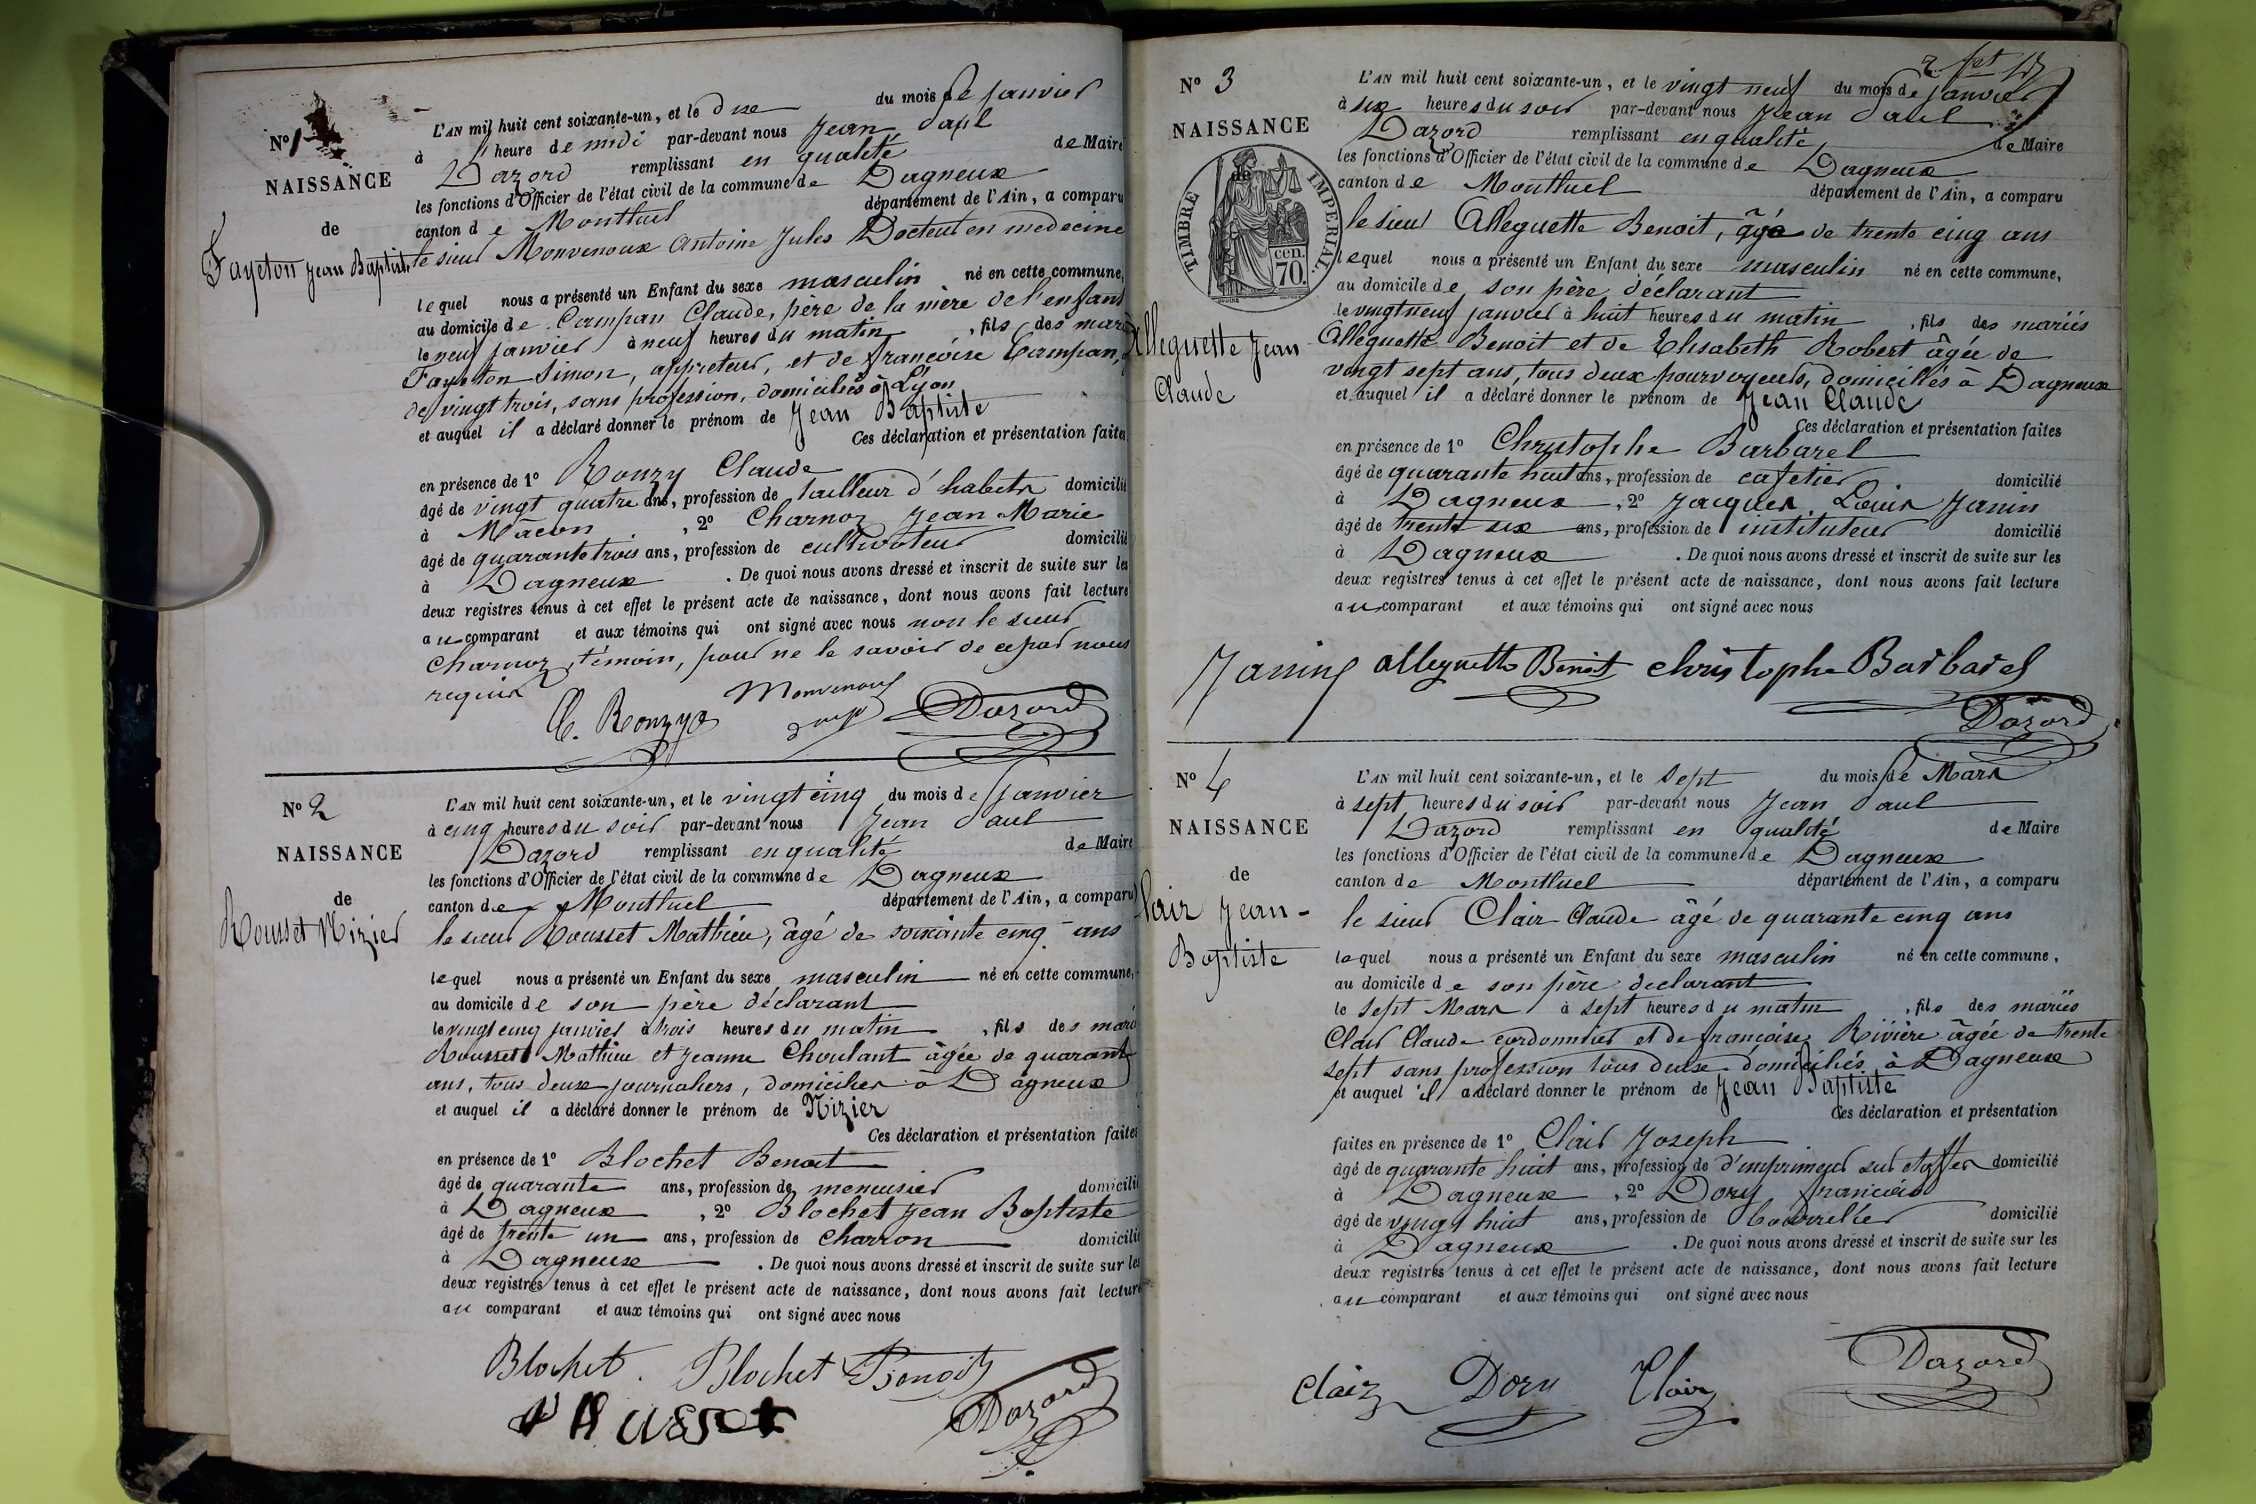 No 1
NAISSANCE
de
Fayeton Jean Baptiste
L'AN mil huit cent soixante-un, et le dix du mois de janvier
à l'heure de midi par-devant nous Jean Paul
Dazord remplissant en qualité de Maire
les fonctions d'Officier de l'état civil de la commune de Dagneux
canton de Montluel département de l'Ain, a comparu
le sieur Monvenoux Antoine Jules Docteur en medecine
lequel nous a présenté un Enfant du sexe masculin né en cette commune,
au domicile de Campan Claude, père de la mère de l'enfant
le neuf janvier à neuf heures du matin, fils des mariés
Fayeton Simon, appreteur, et de françoise Campan,
de vingt trois, sans profession, domiciliés à Lyon
et auquel il a déclaré donner le prénom de Jean Baptiste
Ces déclaration et présentation faites
en présence de 1o Ronzy Claude
âgé de vingt quatre ans, profession de tailleur d'habits domicilié
à Mâcon, 2o Charnoz Jean Marie
âgé de quarante trois ans, profession de cultivateur domicilié
à Dagneux. De quoi nous avons dressé et inscrit de suite sur les
deux registres tenus à cet effet le présent acte de naissance, dont nous avons fait lecture
au comparant et aux témoins qui ont signé avec nous non le sieur
Charnoz, témoin, pour ne le savoir de ce par nous
requis
C. Ronzy Monvenoux Dazord
No 2
NAISSANCE
de
Rousset Nizier
L'AN mil huit cent soixante-un, et le vingt cinq du mois de janvier
à cinq heures du soir par-devant nous Jean Paul
Dazord remplissant en qualité de Maire
les fonctions d'Officier de l'état civil de la commune de Dagneux
canton de Montluel département de l'Ain, a comparu
le sieur Rousset Mathieu, âgé de soixante cinq ans
lequel nous a présenté un Enfant du sexe masculin né en cette commune,
au domicile de son père déclarant
le vingt cinq janvier à trois heures du matin, fils des mariés
Rousset Mathieu et Jeanne Choulant âgée de quarante
ans, tous deux journaliers, domiciliés à Dagneux
et auquel il a déclaré donner le prénom de Nizier
Ces déclaration et présentation faites
en présence de 1o Blochet Benoit
âgé de quarante ans, profession de menuisier domicilié
à Dagneux, 2o Blochet Jean Baptiste
âgé de trente un ans, profession de charron domicilié
à Dagneux. De quoi nous avons dressé et inscrit de suite sur les
deux registres tenus à cet effet le présent acte de naissance, dont nous avons fait lecture
au comparant et aux témoins qui ont signé avec nous
Blochet. Blochet Benoit
Dazord
No 3
NAISSANCE
TIMBRE IMPERIAL.
cen. 70.
Alleguette Jean
Claude
L'AN mil huit cent soixante-un, et le vingt neuf du mois de janvier
à six heures du soir par-devant nous Jean Paul
Dazord remplissant en qualité de Maire
les fonctions d'Officier de l'état civil de la commune de Dagneux
canton de Montluel département de l'Ain, a comparu
le sieur Alleguette Benoit, âgé de trente cinq ans
lequel nous a présenté un Enfant du sexe masculin né en cette commune,
au domicile de son père déclarant
le vingt neuf janvier à huit heures du matin, fils des mariés
Alleguette Benoit et de Elisabeth Robert âgée de
vingt sept ans, tous deux pourvoyeurs, domiciliés à Dagneux
et auquel il a déclaré donner le prénom de Jean Claude
Ces déclaration et présentation faites
en présence de 1o Christophe Barbarel
âgé de quarante huit ans, profession de cafetier domicilié
à Dagneux, 2o Jacques Louis Janin
âgé de trente six ans, profession de instituteur domicilié
à Dagneux. De quoi nous avons dressé et inscrit de suite sur les
deux registres tenus à cet effet le présent acte de naissance, dont nous avons fait lecture
au comparant et aux témoins qui ont signé avec nous
Janin alleguette Benoit christophe Barbarel
Dazord
No 4
NAISSANCE
de
Clair Jean-
Baptiste
L'AN mil huit cent soixante-un, et le sept du mois de Mars
à sept heures du soir par-devant nous Jean Paul
Dazord remplissant en qualité de Maire
les fonctions d'Officier de l'état civil de la commune de Dagneux
canton de Montluel département de l'Ain, a comparu
le sieur Clair Claude âgé de quarante cinq ans
lequel nous a présenté un Enfant du sexe masculin né en cette commune,
au domicile de son père déclarant
le sept Mars à sept heures du matin, fils des mariés
Clair Claude cordonnier et de françoise Rivière âgée de trente
sept sans profession tous deux domiciliés à Dagneux
et auquel il a déclaré donner le prénom de Jean Baptiste
Ces déclaration et présentation
faites en présence de 1o Clair Joseph
âgé de quarante huit ans, profession de d'imprimeur sur étoffes domicilié
à Dagneux, 2o Dory francois
âgé de vingt huit ans, profession de bourrelier domicilié
à Dagneux. De quoi nous avons dressé et inscrit de suite sur les
deux registres tenus à cet effet le présent acte de naissance, dont nous avons fait lecture
au comparant et aux témoins qui ont signé avec nous
Clair Dory Clair Dazord